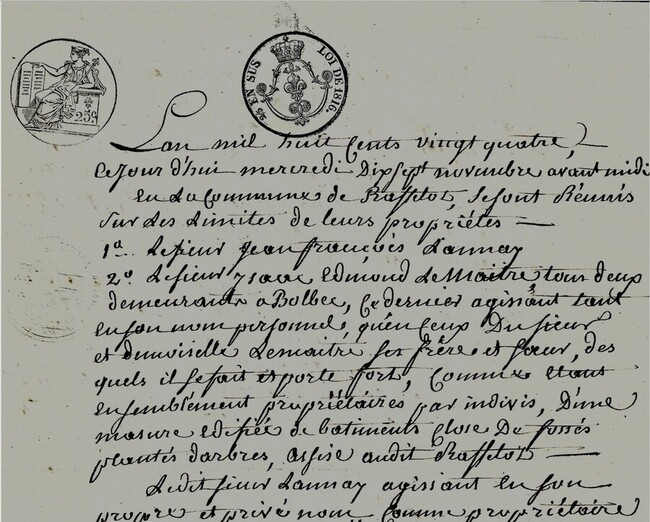 25c
EN SUS
LOI DE 1816.
L'an mil huit Cents vingt quatre,
Ce jour d'hui mercredi Dix sept novembre avant midi
En La Commune de Raffetot, Se sont Réunis
Sur Les Limites de leurs propriétés —
1º Le Sieur Jean françois Lannay
2º Le Sieur ysaac Edmond Le Maitre tous deux
demeurants a Bolbec, Ce dernier agissant tant
En son nom personnel, qu'en Ceux Du Sieur
et demoiselle Lemaitre Ses frère et Sœur, des
quels il Se fait et porte fort, Comme Etant
Ensemblement propriétaires par indivis, D'une
masure Edifiée de batiments Close De fossés
plantés d'arbres, assise audit Raffetot —
Ledit Sieur Lannay agissant en Son
propre et privé nom Comme propriétaire